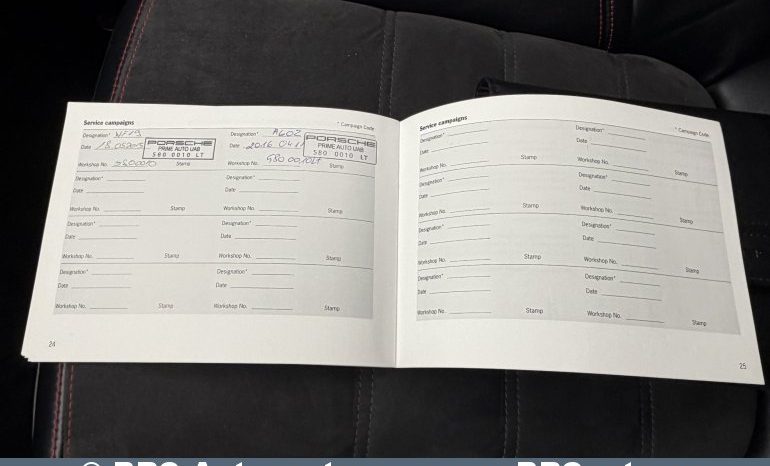 Service campaigns * Campaign Code
Designation* WF19 Designation* A602
Date 18.05.2015 PORSCHE PRIME AUTO UAB 580 0010 LT Date 2016.04.11 PORSCHE PRIME AUTO UAB 580 0010 LT
Workshop No. 5800010 Stamp Workshop No. 5800010LT Stamp
Designation* Designation*
Date Date
Workshop No. Stamp Workshop No. Stamp
Designation* Designation*
Date Date
Workshop No. Stamp Workshop No. Stamp
Designation* Designation*
Date Date
Workshop No. Stamp Workshop No. Stamp
24
Service campaigns * Campaign Code
Designation* Designation*
Date Date
Workshop No. Stamp Workshop No. Stamp
Designation* Designation*
Date Date
Workshop No. Stamp Workshop No. Stamp
Designation* Designation*
Date Date
Workshop No. Stamp Workshop No. Stamp
Designation* Designation*
Date Date
Workshop No. Stamp Workshop No. Stamp
25